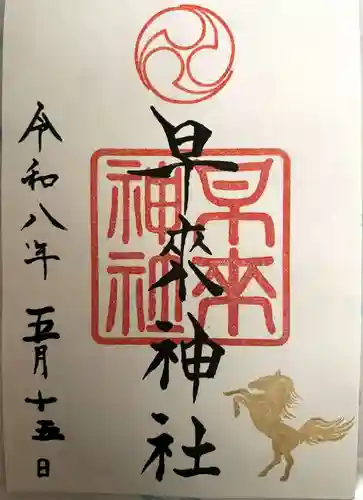 早來神社
早来
神社
令和八年 五月十五日